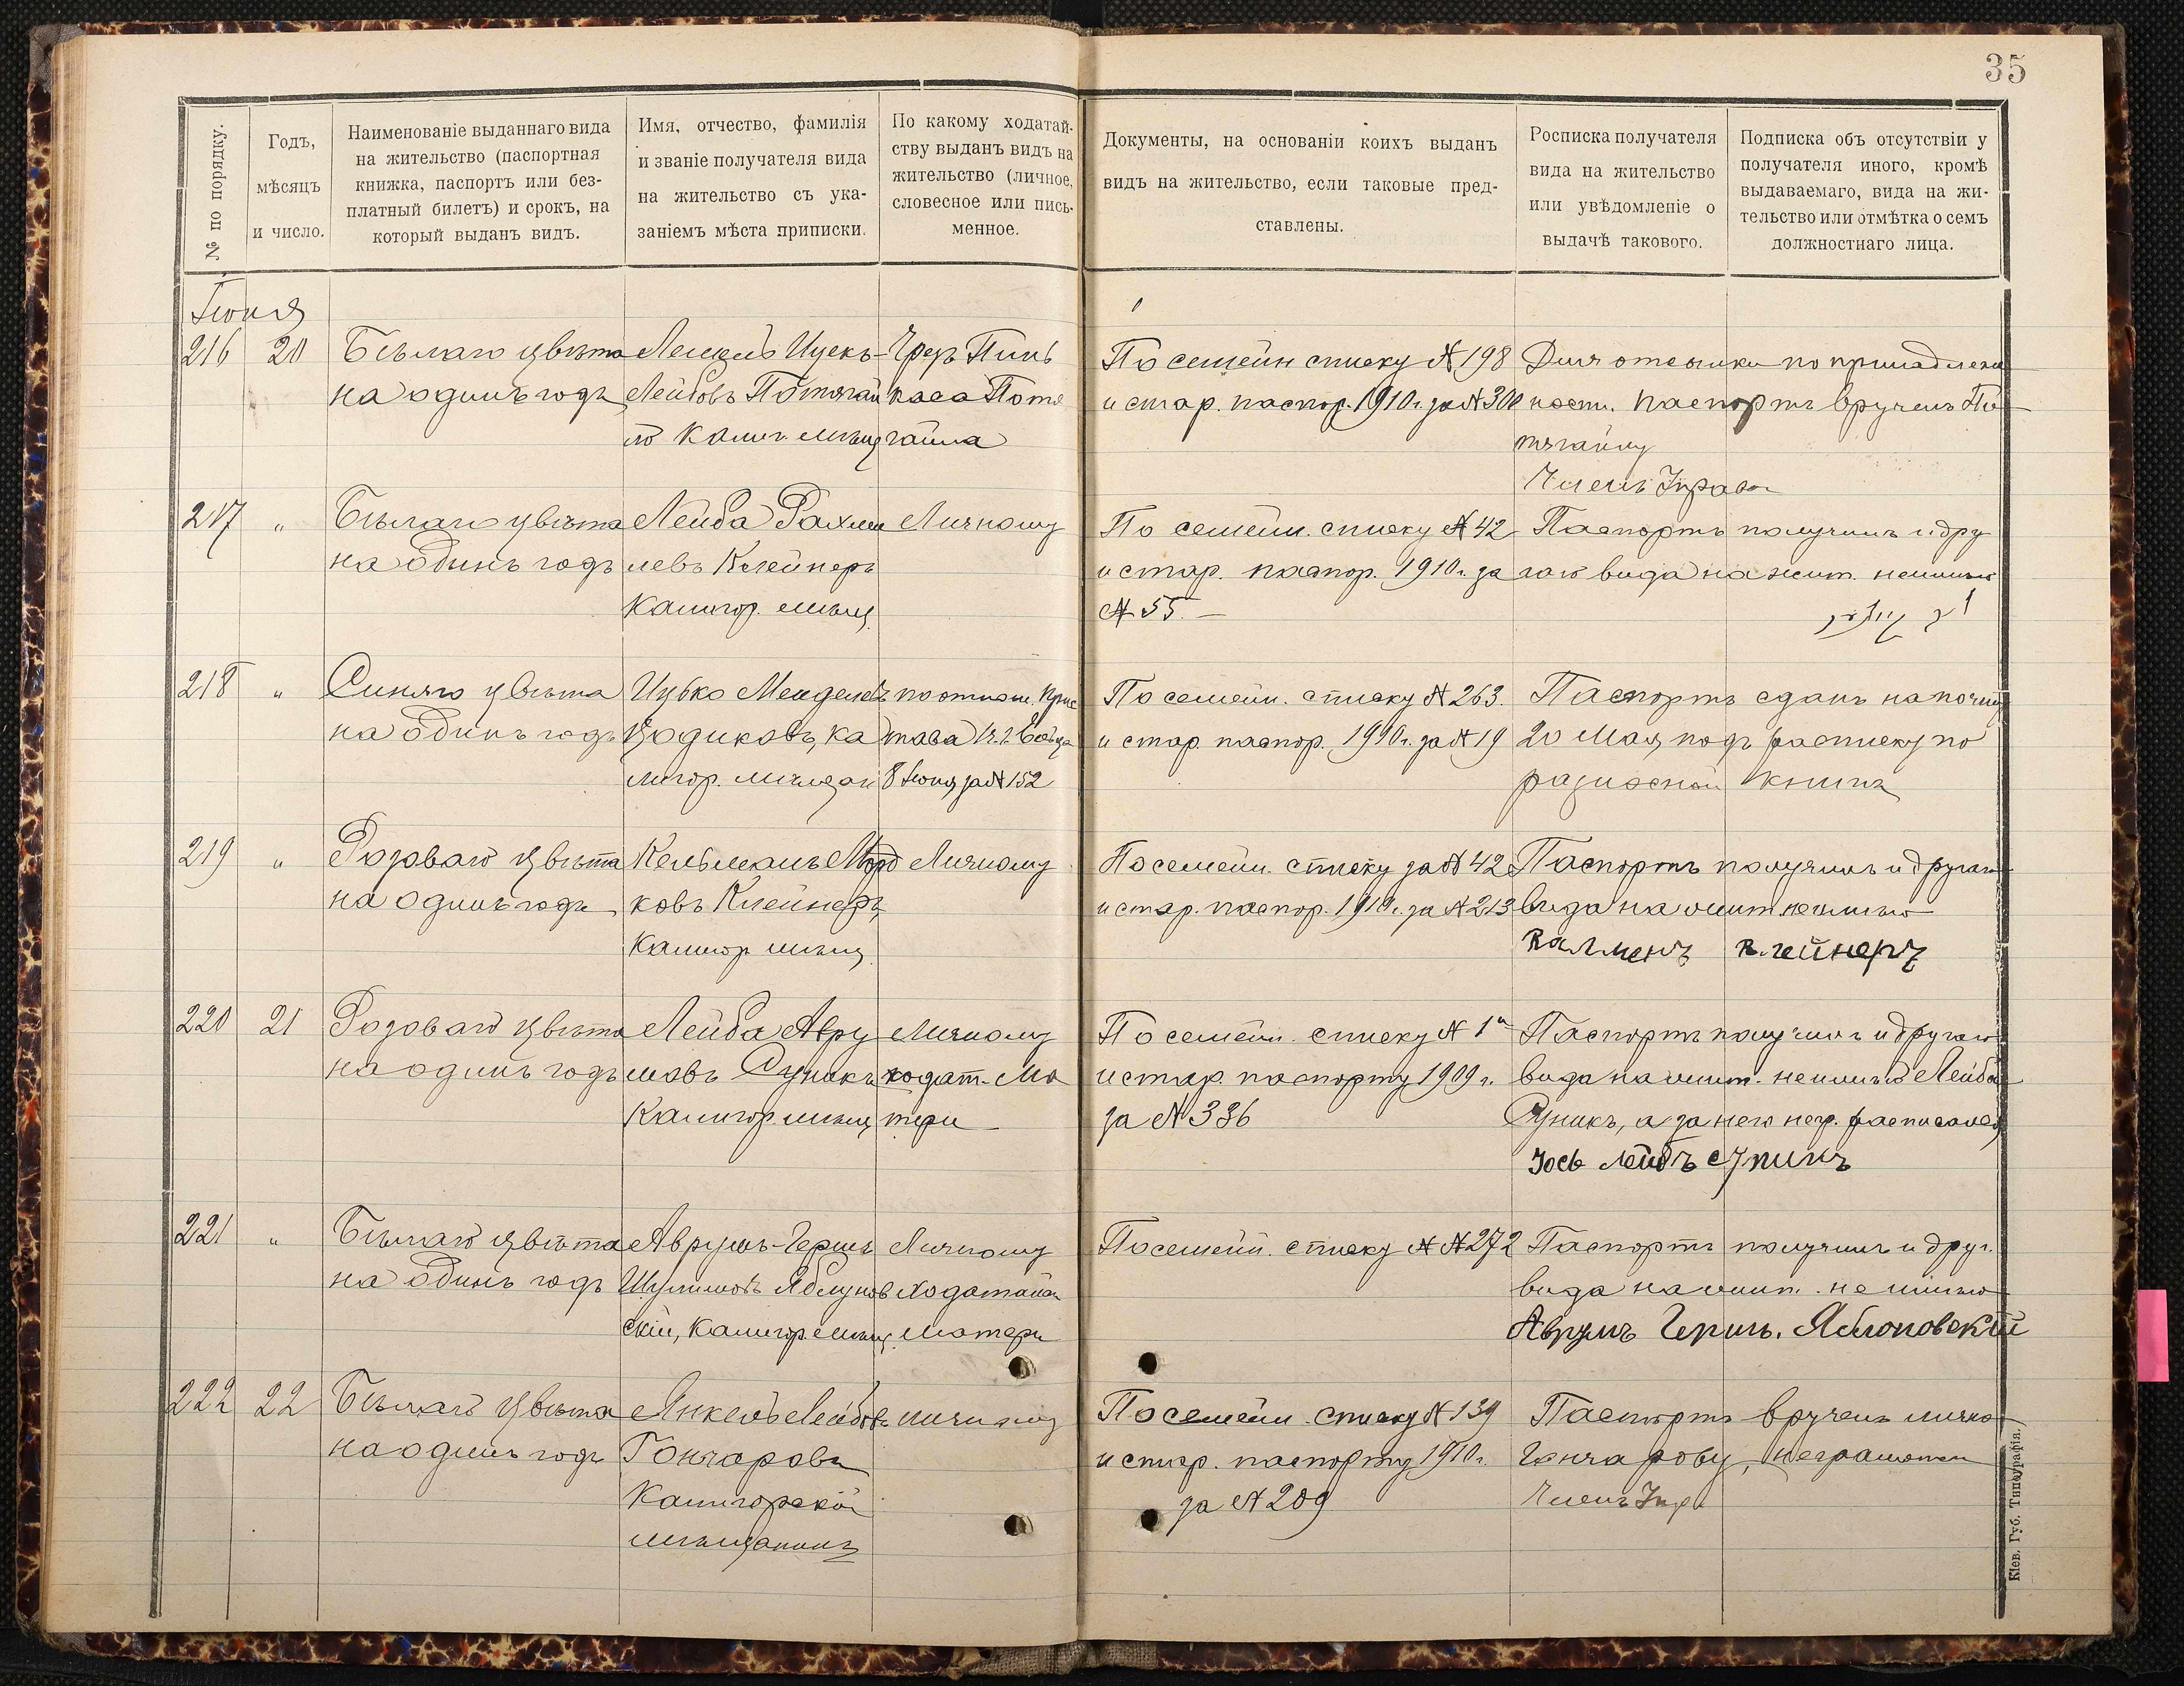 35
№ по порядку.
Годъ,
мѣсяцъ
и число.
Наименованіе выданнаго вида
на жительство (паспортная
книжка, паспортъ или без-
платный билетъ) и срокъ, на
который выданъ видъ.
Имя, отчество, фамилія
и званіе получателя вида
на жительство съ ука-
заніемъ мѣста приписки.
По какому ходатай-
ству выданъ видъ на
жительство (личное,
словесное или пись-
менное.
Документы, на основаніи коихъ выданъ
видъ на жительство, если таковые пред-
ставлены.
Росписка получателя
вида на жительство
или увѣдомленіе о
выдачѣ такового.
Подписка объ отсутствіи у
получателя иного, кромѣ
выдаваемаго, вида на жи-
тельство или отмѣтка о семъ
должностнаго лица.
Іюня
216 20
Бѣлаго цвѣта
на одинъ годъ
Ицекъ-
Лейбовъ Потягай
ло Калиг. мѣщ
Чрезъ Пинь
каса Потя
гайла
По семейн списку № 198
и стар. паспор. 1910 г. за № 300
Для отсылки по принадлеж
ности. Паспортъ врученъ По
тягайлу
Членъ Управы
217 "
Бѣлаго цвѣта
на одинъ годъ
Лейба Рахми
левъ Клейнеръ
Калигор. мѣщ.
Личному
По семейн. списку № 42
и стар. паспор. 1910 г. за
№ 55. –
Паспортъ получилъ и дру
гого вида на жит. не имѣю
218 "
Синяго цвѣта
на одинъ годъ
Ицько Менделевъ
Цодиковъ, Ка
лигор. мѣщан
по отнош. Прис
тава
8 Іюня за № 152
По семейн. списку № 263.
и стар. паспор. 1910 г. за № 19
Паспортъ сданъ на почту
20 Мая подъ расписку по
разносной книгѣ
219 "
Розоваго цвѣта
на одинъ годъ
Кельманъ Морд
ковъ Клейнеръ
Калигор мѣщ.
Личному
По семейн. списку за № 42
и стар. паспор. 1910 г. за № 213
Паспортъ получилъ и другого
вида на жит не имѣю
Калменъ Клейнеръ
220 21
Розоваго цвѣта
на одинъ годъ
Лейба Авру
мовъ Суникъ
Калигор. мѣщ
Личному
ходат. Ма
тери
По семейн. списку № 1
и стар. паспорту 1909 г.
за № 336
Паспортъ получилъ и другого
вида на жит. не имѣю Лейба
Суникъ, а за него негр. расписался
221 "
Бѣлаго цвѣта
на одинъ годъ
Аврумъ-Гершъ
Шулимовъ Яблунов
скій, Калигор. мѣщ.
Личному
ходатайст
матери
По семейн. списку № № 272
Паспортъ получилъ и друг.
вида на жит. не имѣю
Аврумъ Гершъ. Яблоновскій
222 22
Бѣлаго цвѣта
на одинъ годъ
Янкель Лейбовъ
Гончаровъ
Калигорскій
мѣщанинъ
Личному
По семейн. списку № 139
и стар. паспорту 1910 г.
за № 209
Паспортъ врученъ лично
Гончарову, неграмотен
Членъ Упр
Кіев. Губ. Типографія.